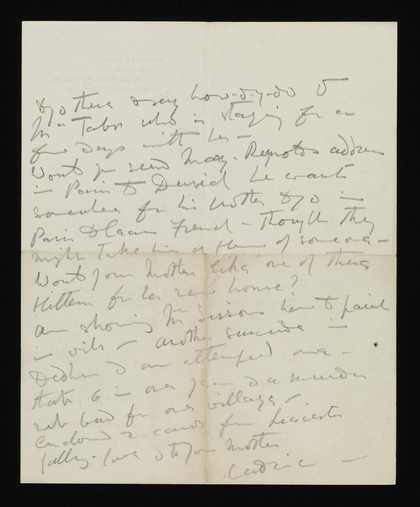 go there & say how-d-y-do to
Mr Tabor who is staying for a
few days with her -
Wont you send Mary Reynolds address
in Paris to David he wants
somewhere for his brother to go in
Paris to learn French - thought they
might take him or know of someone -
Wont your mother like one of these
Kittens for her new house?
Am showing Mr Sissons how to paint
in oils - another suicide in
& an attempted one -
that's 6 in one year & a murder
not bad for one village -
Enclosed 2 cards from Leicester
love to your mother
Cedric -